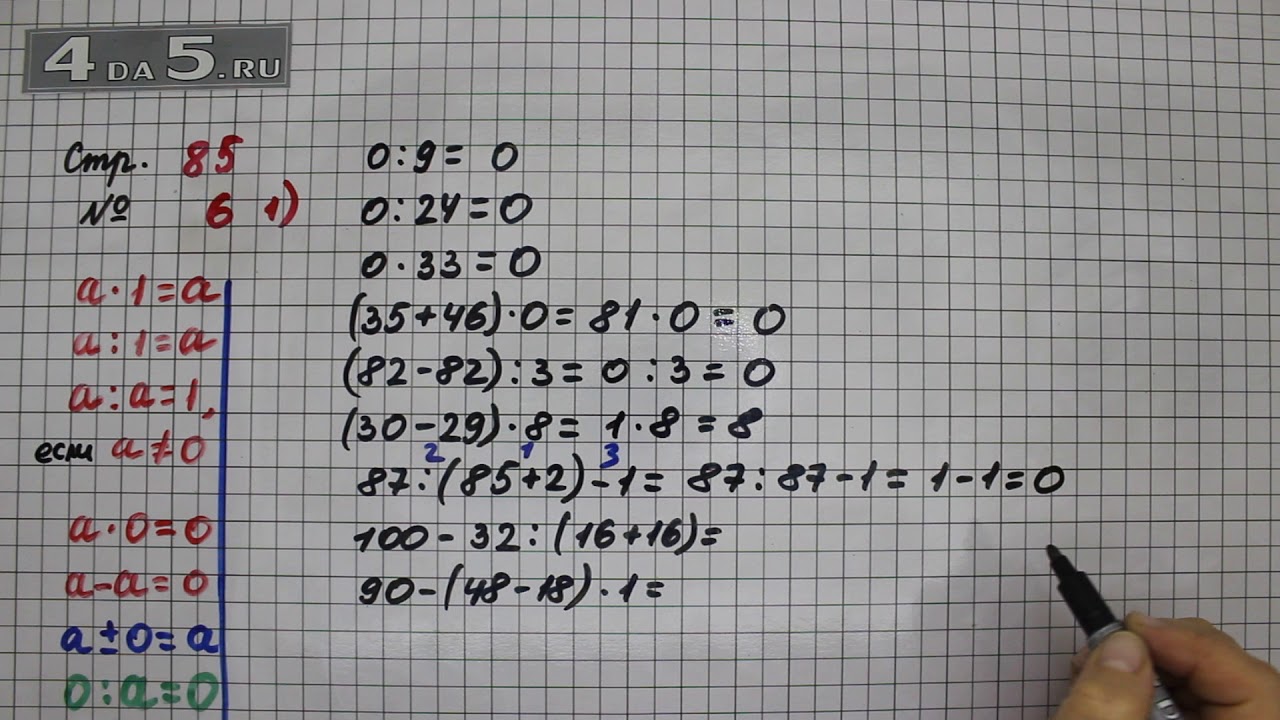 4DA5.RU
Стр. 85
№ 6 1)
a·1=a
a:1=a
a:a=1,
если a≠0
a·0=0
a-a=0
a±0=a
0:a=0
0:9= 0
0:24=0
0·33=0
(35+46)·0= 81·0=0
(82-82):3= 0:3=0
(30-29)·8= 1·8=8
2 1 3
87:(85+2)-1= 87:87-1= 1-1=0
100-32:(16+16)=
90-(48-18)·1=